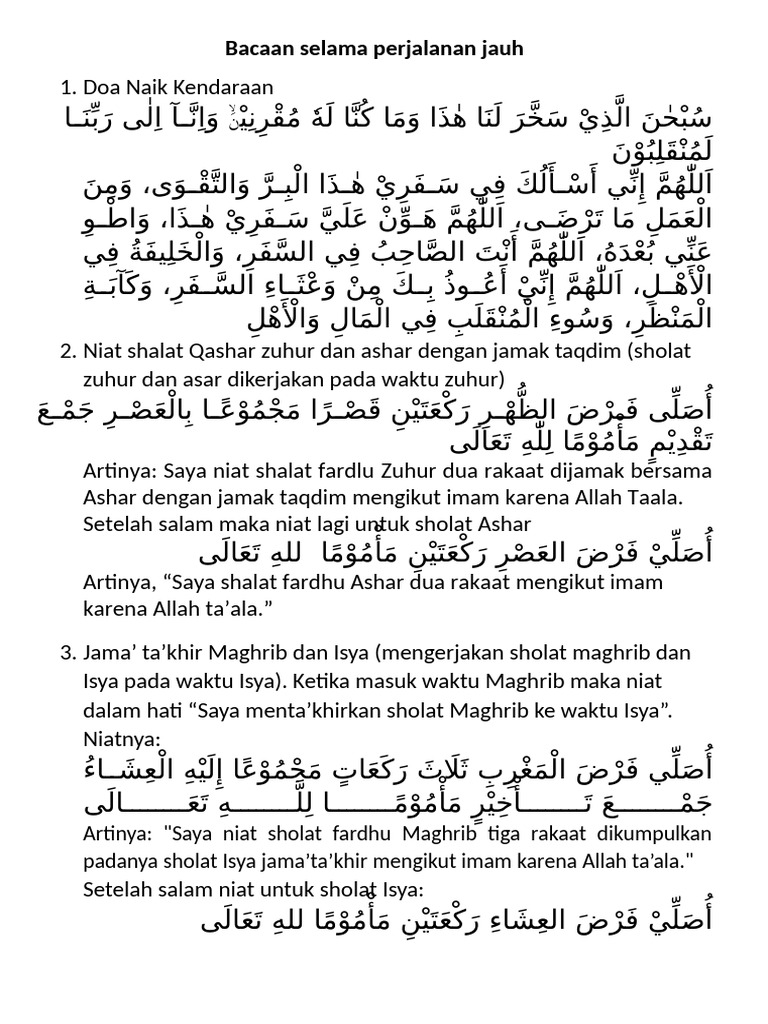 Bacaan selama perjalanan jauh
1. Doa Naik Kendaraan
سُبْحٰنَ الَّذِيْ سَخَّرَ لَنَا هٰذَا وَمَا كُنَّا لَهٗ مُقْرِنِيْنَۙ وَاِنَّآ اِلٰى رَبِّنَا
لَمُنْقَلِبُوْنَ
اَللّٰهُمَّ إِنِّي أَسْأَلُكَ فِي سَفَرِيْ هٰذَا الْبِرَّ وَالتَّقْوَى، وَمِنَ
الْعَمَلِ مَا تَرْضَى، اَللّٰهُمَّ هَوِّنْ عَلَيَّ سَفَرِيْ هٰذَا، وَاطْوِ
عَنِّي بُعْدَهُ، اَللّٰهُمَّ أَنْتَ الصَّاحِبُ فِي السَّفَرِ، وَالْخَلِيفَةُ فِي
الْأَهْلِ، اَللّٰهُمَّ إِنِّيْ أَعُوذُ بِكَ مِنْ وَعْثَاءِ السَّفَرِ، وَكَآبَةِ
الْمَنْظَرِ، وَسُوءِ الْمُنْقَلَبِ فِي الْمَالِ وَالْأَهْلِ
2. Niat shalat Qashar zuhur dan ashar dengan jamak taqdim (sholat
zuhur dan asar dikerjakan pada waktu zuhur)
أُصَلِّى فَرْضَ الظُّهْرِ رَكْعَتَيْنِ قَصْرًا مَجْمُوْعًا بِالْعَصْرِ جَمْعَ
تَقْدِيْمٍ مَأْمُوْمًا لِلّٰهِ تَعَالَى
Artinya: Saya niat shalat fardlu Zuhur dua rakaat dijamak bersama
Ashar dengan jamak taqdim mengikut imam karena Allah Taala.
Setelah salam maka niat lagi untuk sholat Ashar
أُصَلِّيْ فَرْضَ العَصْرِ رَكْعَتَيْنِ مَأْمُوْمًا للهِ تَعَالَى
Artinya, “Saya shalat fardhu Ashar dua rakaat mengikut imam
karena Allah ta’ala.”
3. Jama’ ta’khir Maghrib dan Isya (mengerjakan sholat maghrib dan
Isya pada waktu Isya). Ketika masuk waktu Maghrib maka niat
dalam hati “Saya menta’khirkan sholat Maghrib ke waktu Isya”.
Niatnya:
أُصَلِّي فَرْضَ الْمَغْرِبِ ثَلَاثَ رَكَعَاتٍ مَجْمُوْعًا إِلَيْهِ الْعِشَاءُ
جَمْعَ تَأْخِيْرٍ مَأْمُوْمًا لِلَّهِ تَعَالَى
Artinya: "Saya niat sholat fardhu Maghrib tiga rakaat dikumpulkan
padanya sholat Isya jama’ta’khir mengikut imam karena Allah ta’ala."
Setelah salam niat untuk sholat Isya:
أُصَلِّيْ فَرْضَ العِشَاءِ رَكْعَتَيْنِ مَأْمُوْمًا للهِ تَعَالَى